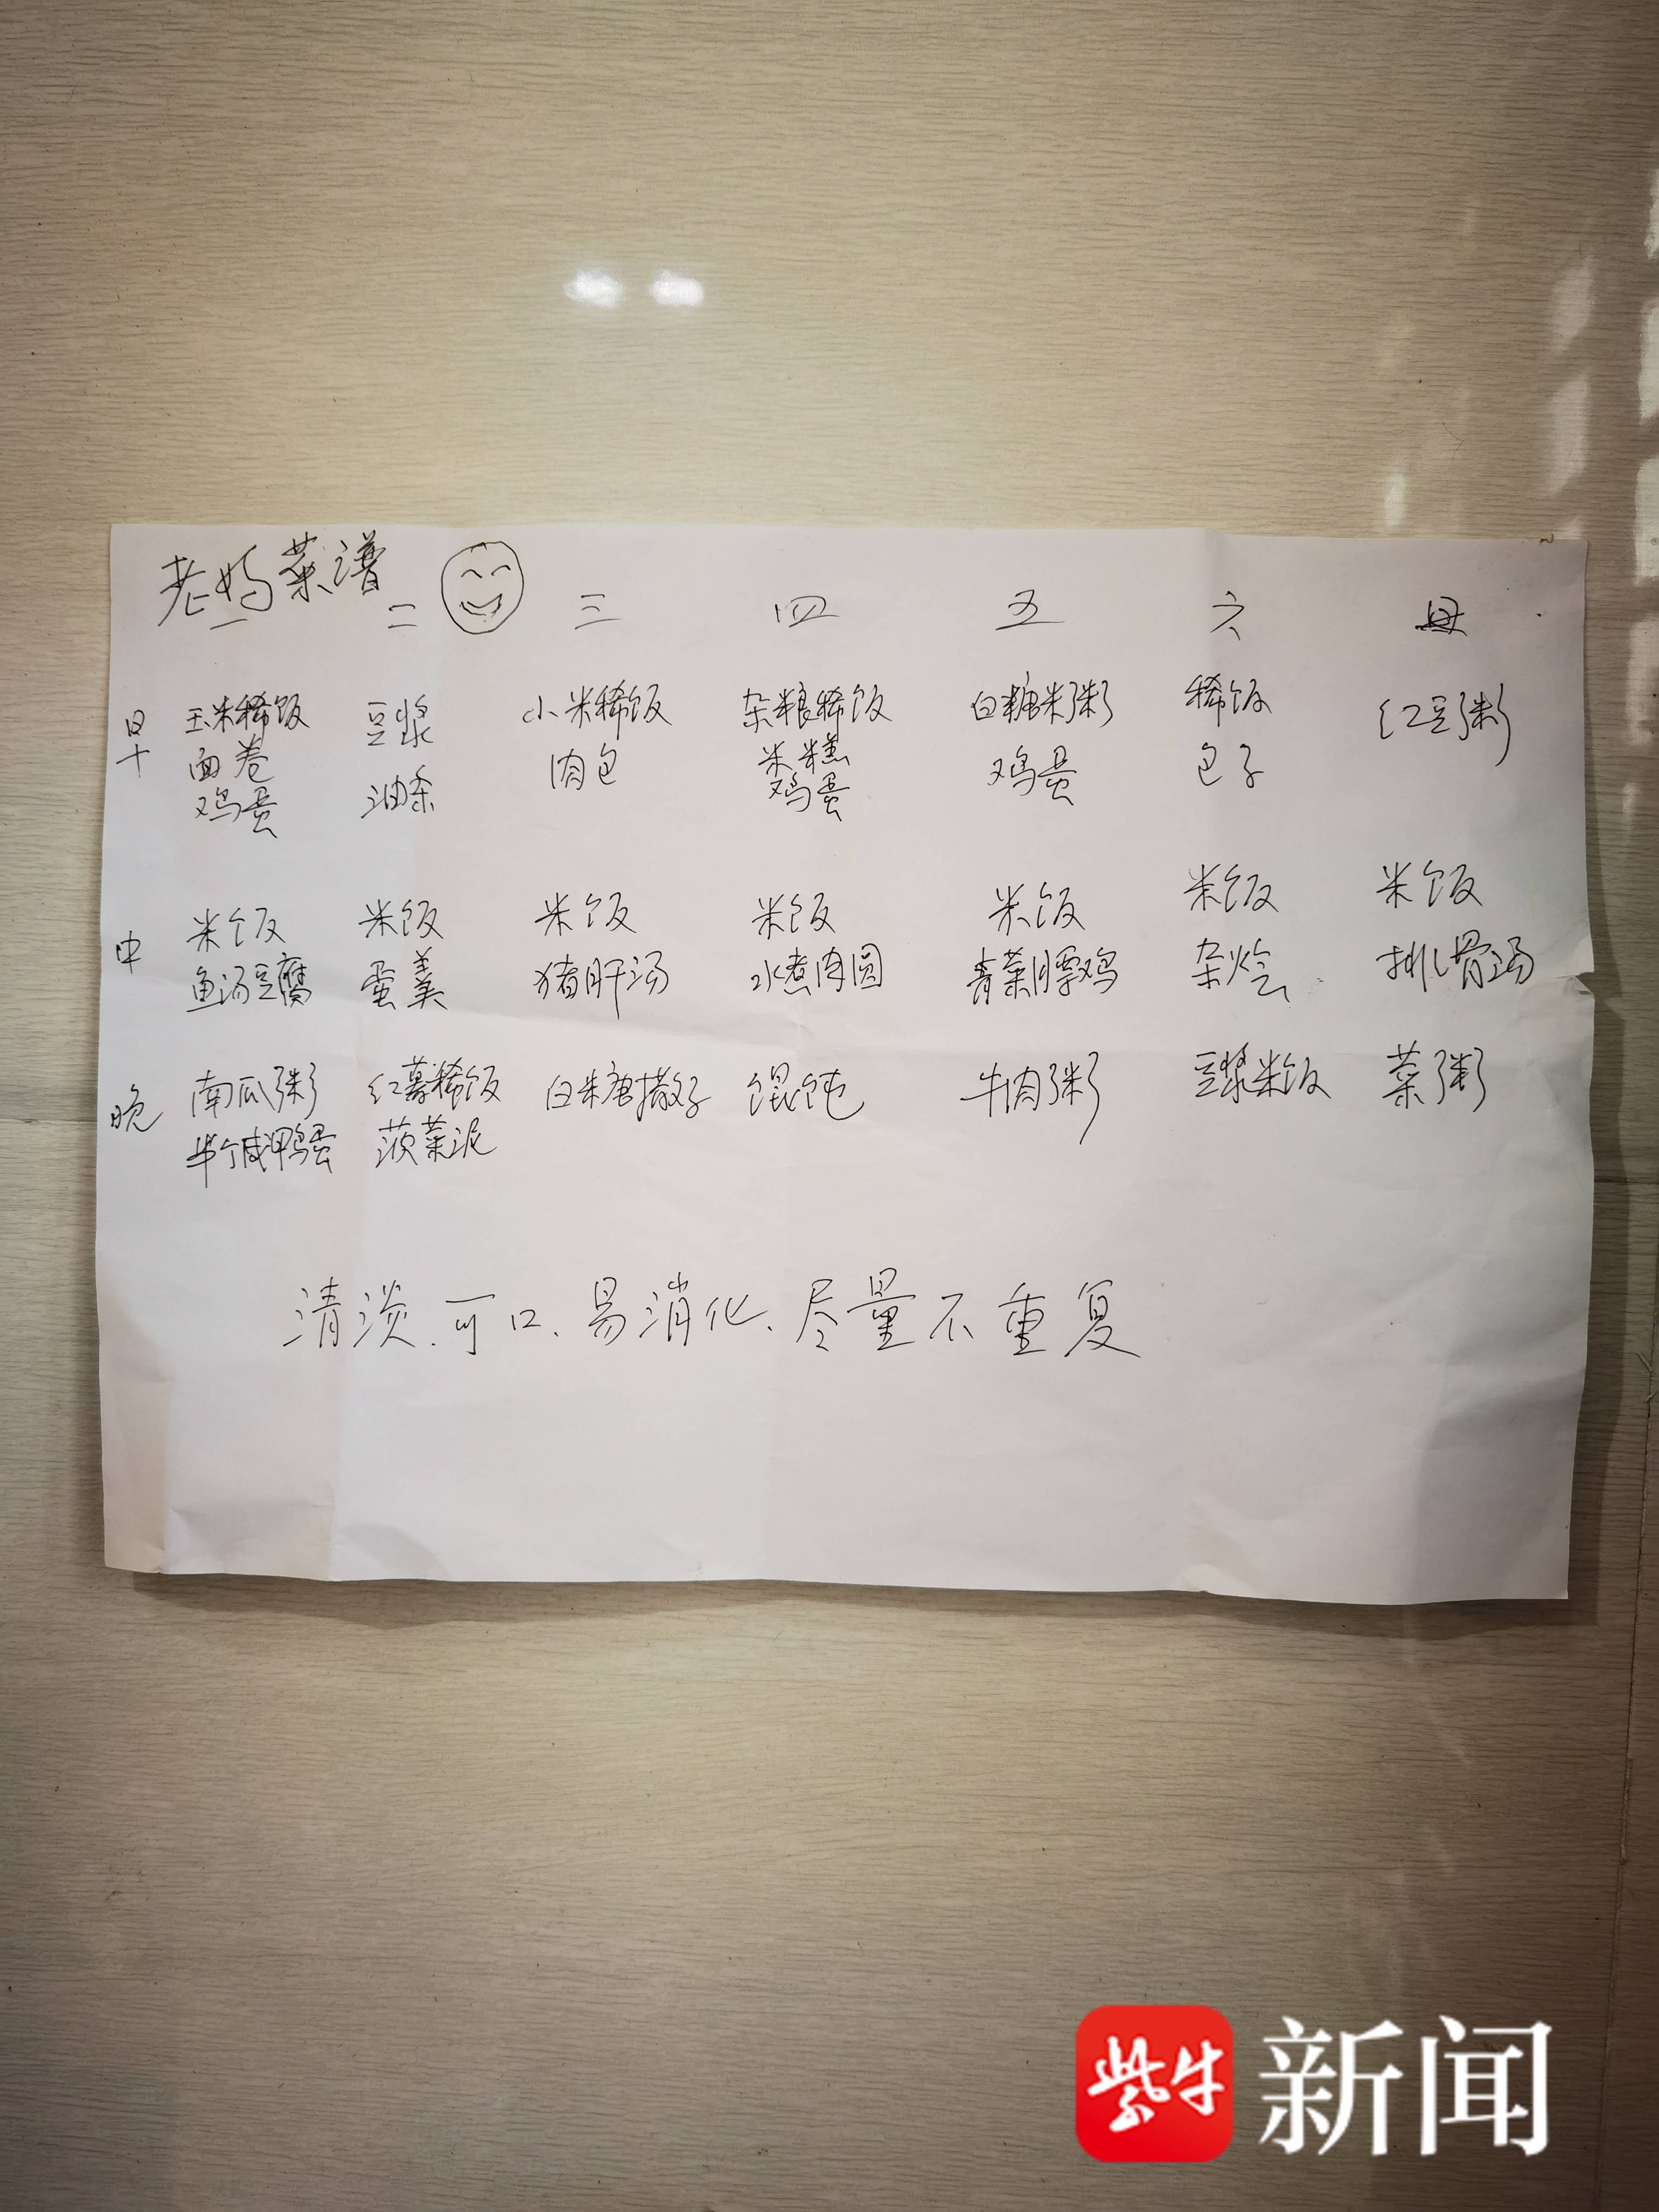 老妈菜谱
一 二 三 四 五 六 日
早 玉米稀饭 豆浆 小米稀饭 杂粮稀饭 白糖米粥 稀饭 红豆粥
面卷 油条 肉包 米糕 鸡蛋 包子
鸡蛋 鸡蛋
中 米饭 米饭 米饭 米饭 米饭 米饭 米饭
鱼汤豆腐 蛋羹 猪肝汤 水煮肉圆 青菜膘鸡 杂烩 排骨汤
晚 南瓜粥 红薯稀饭 馄饨 牛肉粥 豆浆米饭 菜粥
半个咸鸭蛋 菠菜泥
清淡、可口、易消化、尽量不重复
紫牛 新闻